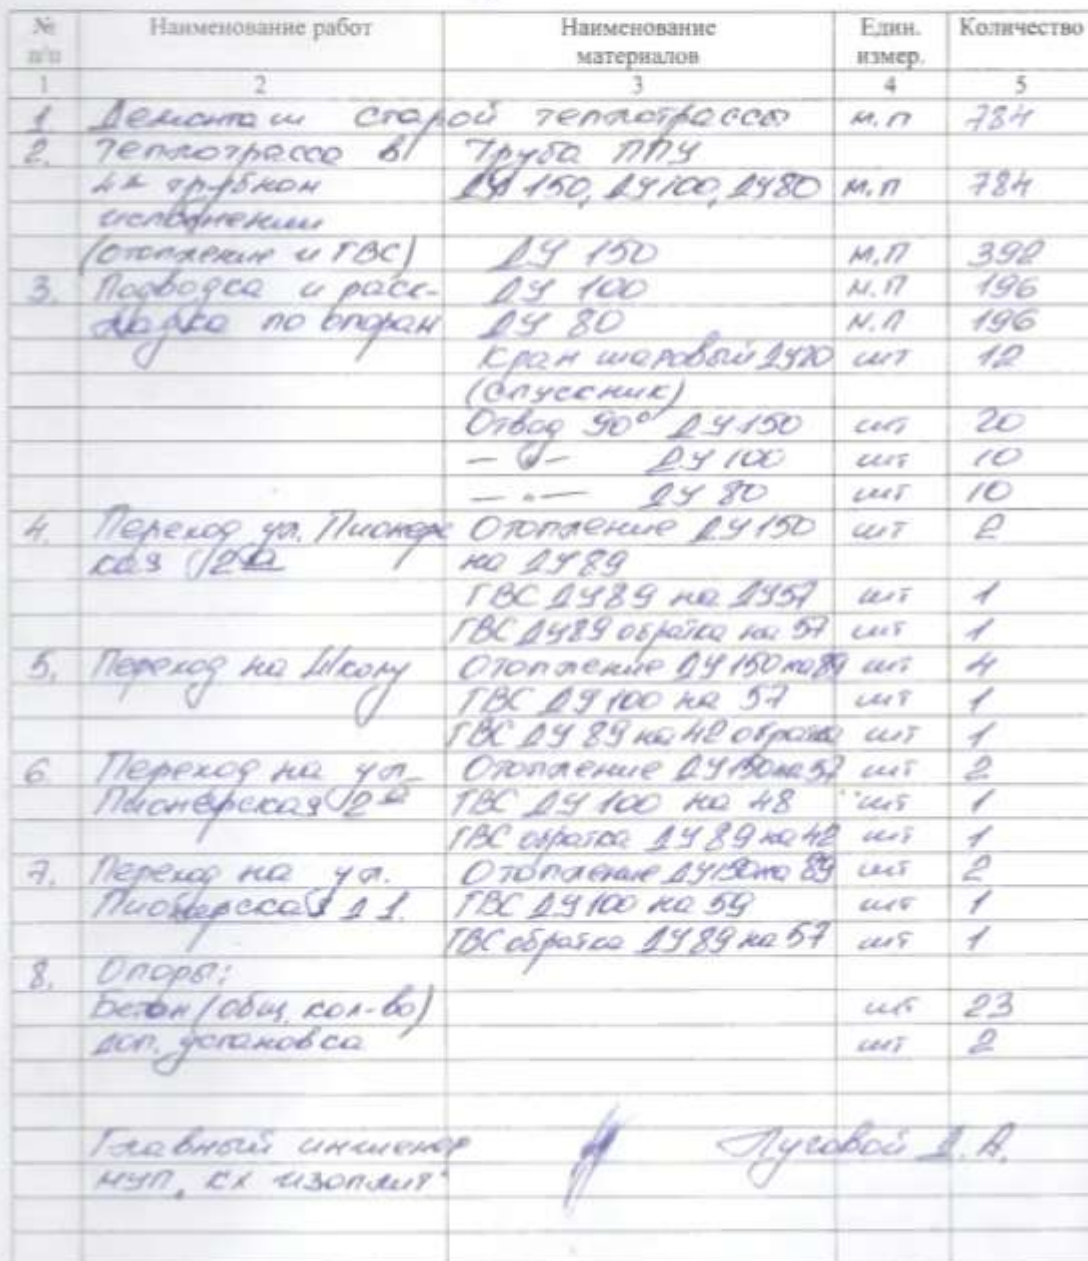 № Наименование работ Наименование Един. Количество
п/п материалов измер.
1 2 3 4 5
1 Демонтаж старой теплотрассы м.п 784
2. Теплотрасса в Труба ППУ
4х трубном ДУ 150, ДУ100, ДУ80 м.п 784
исполнении
(отопление и ГВС) ДУ 150 м.п 392
3. Подводка и раск- ДУ 100 м.п 196
ладка по опорам ДУ 80 м.п 196
Кран шаровый ДУ20 шт 12
(спускник)
Отвод 90° ДУ150 шт 20
— „ — ДУ 100 шт 10
— „ — ДУ 80 шт 10
4. Переход ул. Пионерс Отопление ДУ150 шт 2
кая 12а на ДУ89
ГВС ДУ89 на ДУ57 шт 1
ГВС ДУ89 обратка на 57 шт 1
5. Переход на Школу Отопление ДУ150 на 89 шт 4
ГВС ДУ100 на 57 шт 1
ГВС ДУ 89 на 42 обратка шт 1
6 Переход на ул. Отопление ДУ150 на 57 шт 2
Пионерская 12а ГВС ДУ 100 на 48 шт 1
ГВС обратка ДУ 89 на 42 шт 1
7. Переход на ул. Отопление ДУ150 на 89 шт 2
Пионерская д 1. ГВС ДУ100 на 59 шт 1
ГВС обратка ДУ 89 на 57 шт 1
8. Опоры:
Бетон (общ. кол-во) шт 23
доп. установка шт 2
Главный инженер Луговой Д. А.
МУП „КХ Изоплит"